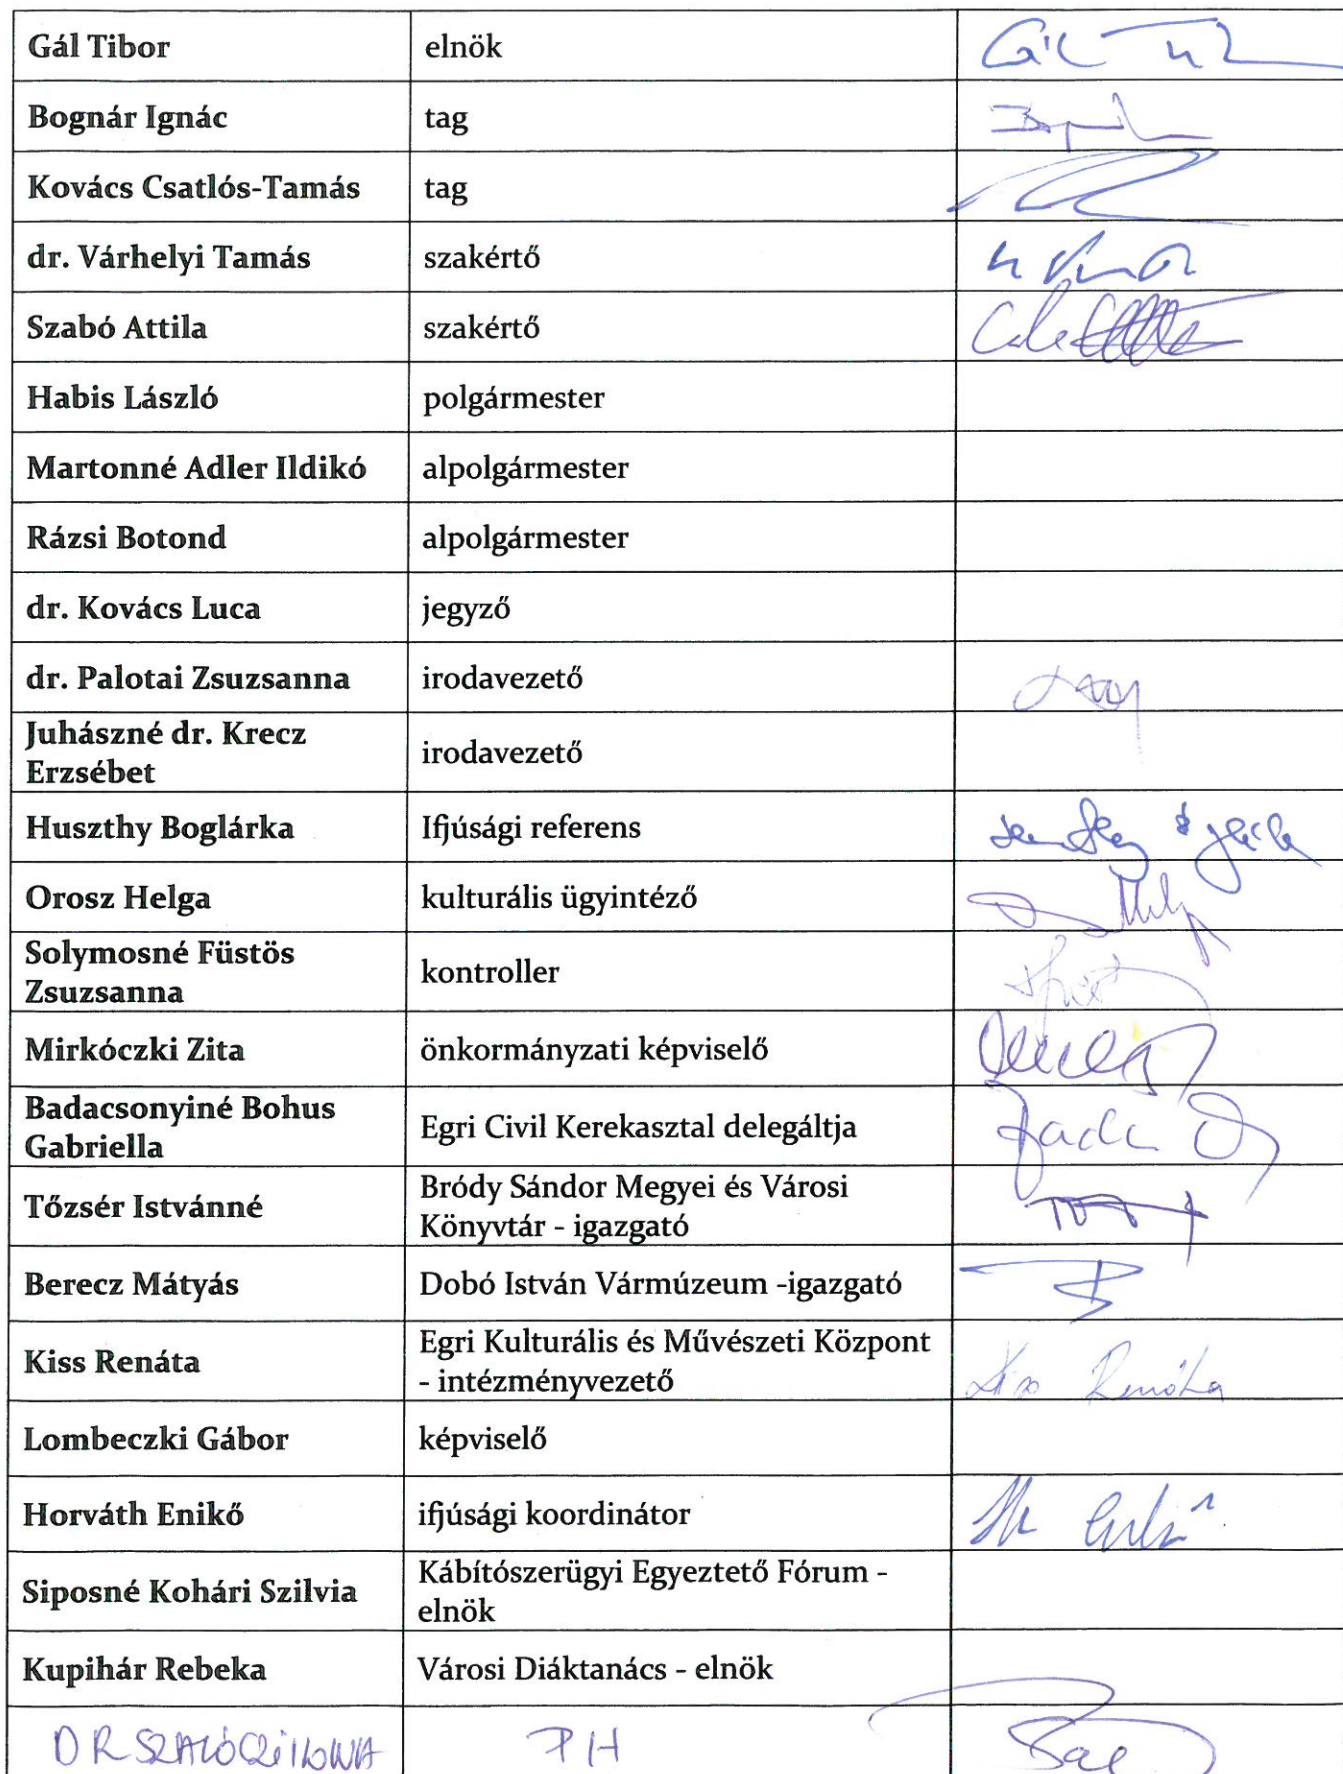 Gál Tibor elnök
Bognár Ignác tag
Kovács Csatlós-Tamás tag
dr. Várhelyi Tamás szakértő
Szabó Attila szakértő
Habis László polgármester
Martonné Adler Ildikó alpolgármester
Rázsi Botond alpolgármester
dr. Kovács Luca jegyző
dr. Palotai Zsuzsanna irodavezető
Juhászné dr. Krecz
Erzsébet
irodavezető
Huszthy Boglárka Ifjúsági referens
Orosz Helga kulturális ügyintéző
Solymosné Füstös
Zsuzsanna
kontroller
Mirkóczki Zita önkormányzati képviselő
Badacsonyiné Bohus
Gabriella
Egri Civil Kerekasztal delegáltja
Tőzsér Istvánné
Bródy Sándor Megyei és Városi
Könyvtár - igazgató
Berecz Mátyás Dobó István Vármúzeum -igazgató
Kiss Renáta
Egri Kulturális és Művészeti Központ
- intézményvezető
Kiss Renáta
Lombeczki Gábor képviselő
Horváth Enikő ifjúsági koordinátor
Siposné Kohári Szilvia
Kábítószerügyi Egyeztető Fórum -
elnök
Kupihár Rebeka Városi Diáktanács - elnök
DR SZALÓCZI ILONA PH